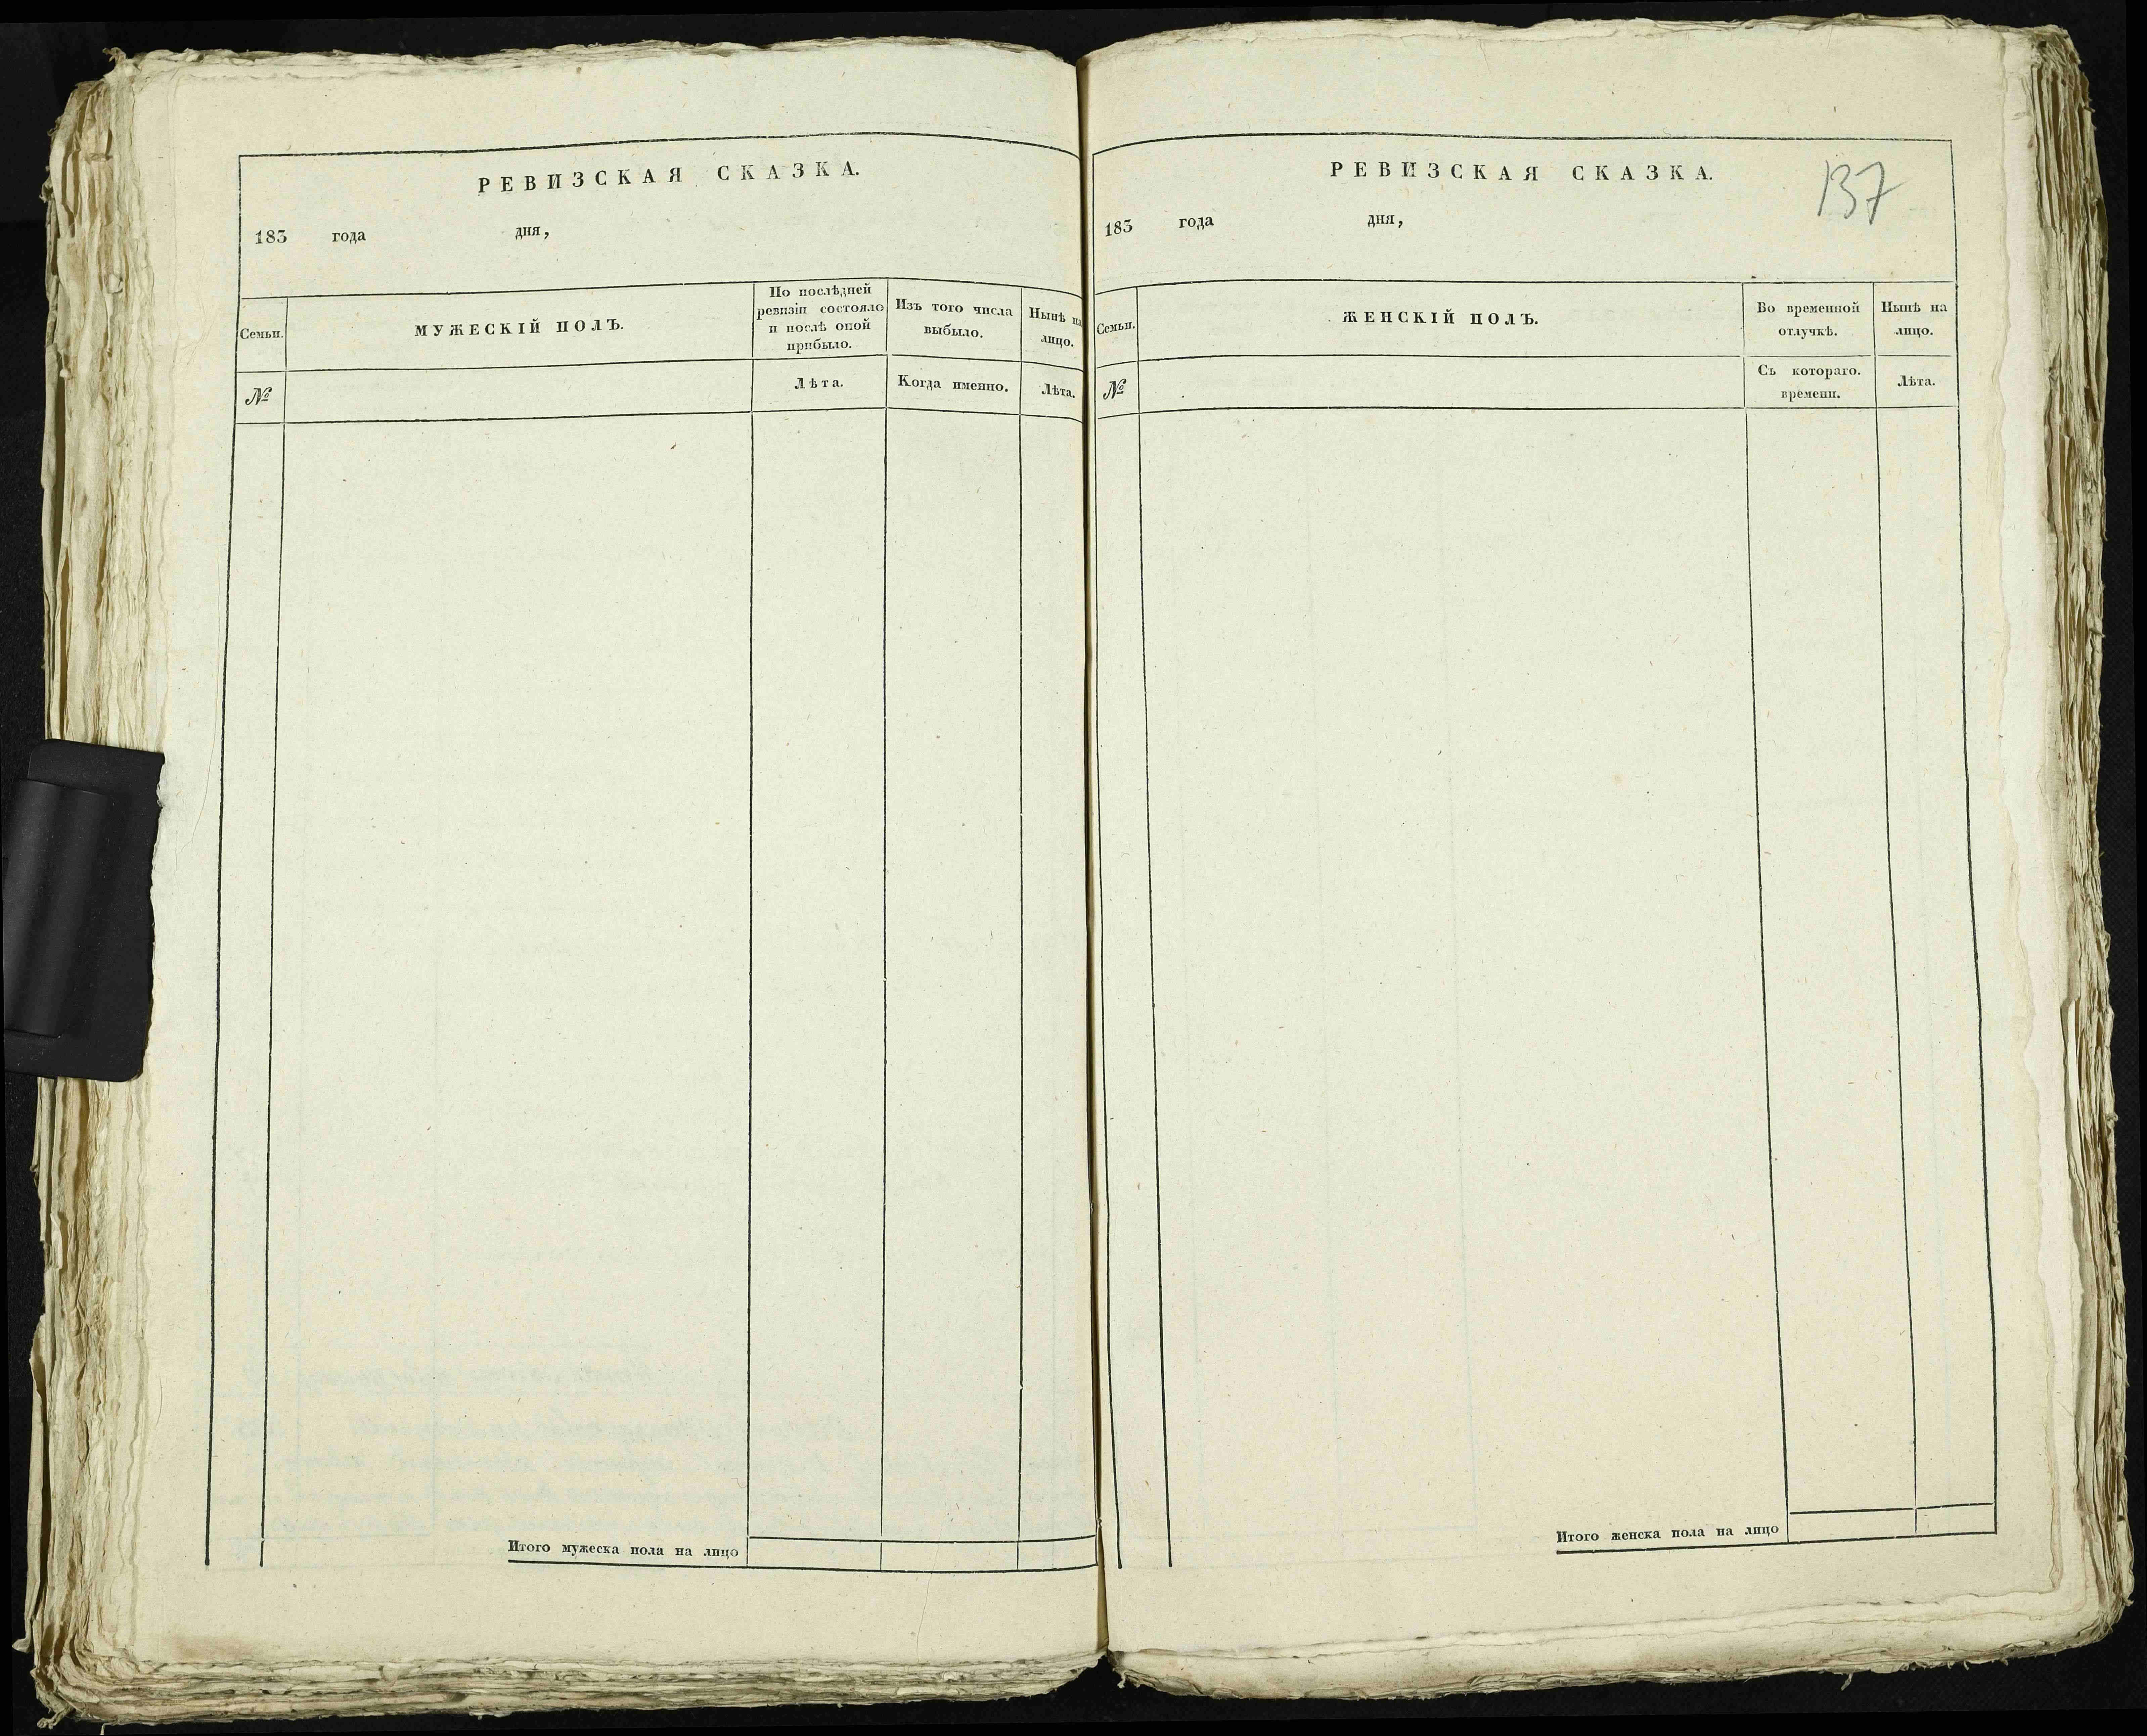 РЕВИЗСКАЯ СКАЗКА.
183 года дня,
Семьи.
МУЖЕСКІЙ ПОЛЪ.
По послѣдней
ревизіи состояло
и послѣ оной
прибыло.
Изъ того числа
выбыло.
Нынѣ на
лицо.
№
Лѣта.
Когда именно.
Лѣта.
Итого мужеска пола на лицо
РЕВИЗСКАЯ СКАЗКА.
137
183 года дня,
Семьи.
ЖЕНСКІЙ ПОЛЪ.
Во временной
отлучкѣ.
Нынѣ на
лицо.
№
Съ котораго.
времени.
Лѣта.
Итого женска пола на лицо